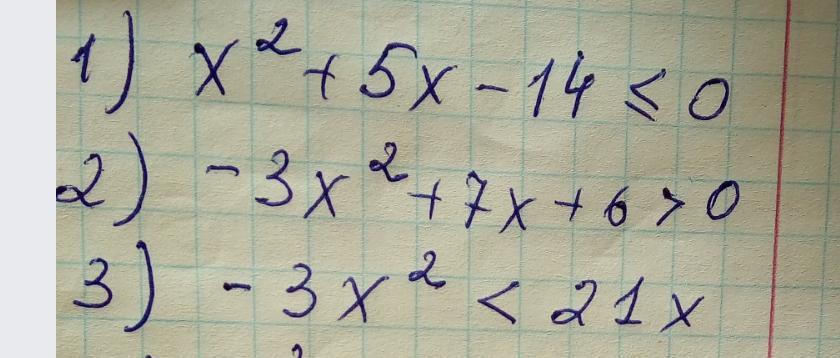 1) x² + 5x - 14 ≤ 0
2) -3x² + 7x + 6 > 0
3) -3x² < 21x